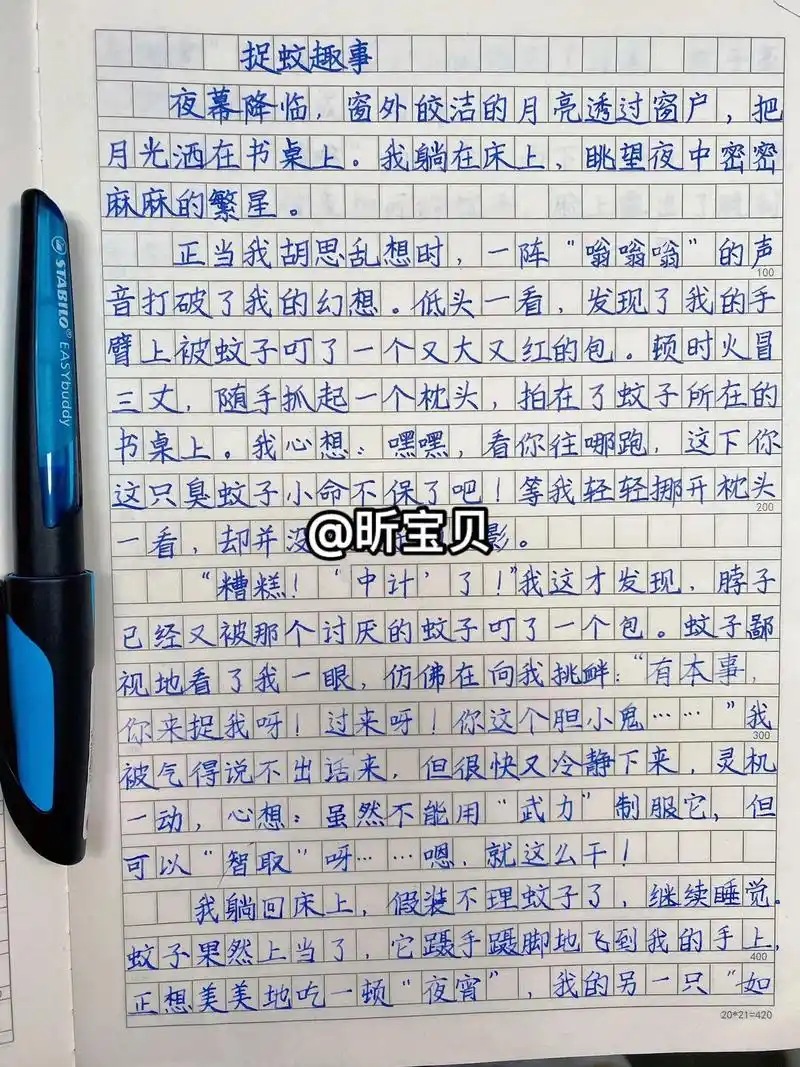 捉蚊趣事
夜幕降临，窗外皎洁的月亮透过窗户，把
月光洒在书桌上。我躺在床上，眺望夜中密密
麻麻的繁星。
正当我胡思乱想时，一阵“嗡嗡嗡”的声
100
音打破了我的幻想。低头一看，发现了我的手
臂上被蚊子叮了一个又大又红的包。顿时火冒
三丈，随手抓起一个枕头，拍在了蚊子所在的
书桌上。我心想：嘿嘿，看你往哪跑，这下你
这只臭蚊子小命不保了吧！等我轻轻挪开枕头
200
一看，却并没影。
@昕宝贝
“糟糕！‘中计’了！”我这才发现，脖子
已经又被那个讨厌的蚊子叮了一个包。蚊子鄙
视地看了我一眼，仿佛在向我挑衅：“有本事，
你来捉我呀！过来呀！你这个胆小鬼……”我
300
被气得说不出话来，但很快又冷静下来，灵机
一动，心想：虽然不能用“武力”制服它，但
可以“智取”呀……嗯，就这么干！
我躺回床上，假装不理蚊子了，继续睡觉。
蚊子果然上当了，它蹑手蹑脚地飞到我的手上，
400
正想美美地吃一顿“夜宵”，我的另一只“如
20*21=420
STABILO EASYbuddy